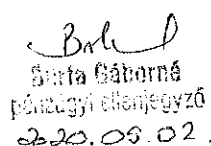 Burta Gáborné
pénzügyi ellenjegyző
2020.09.02.